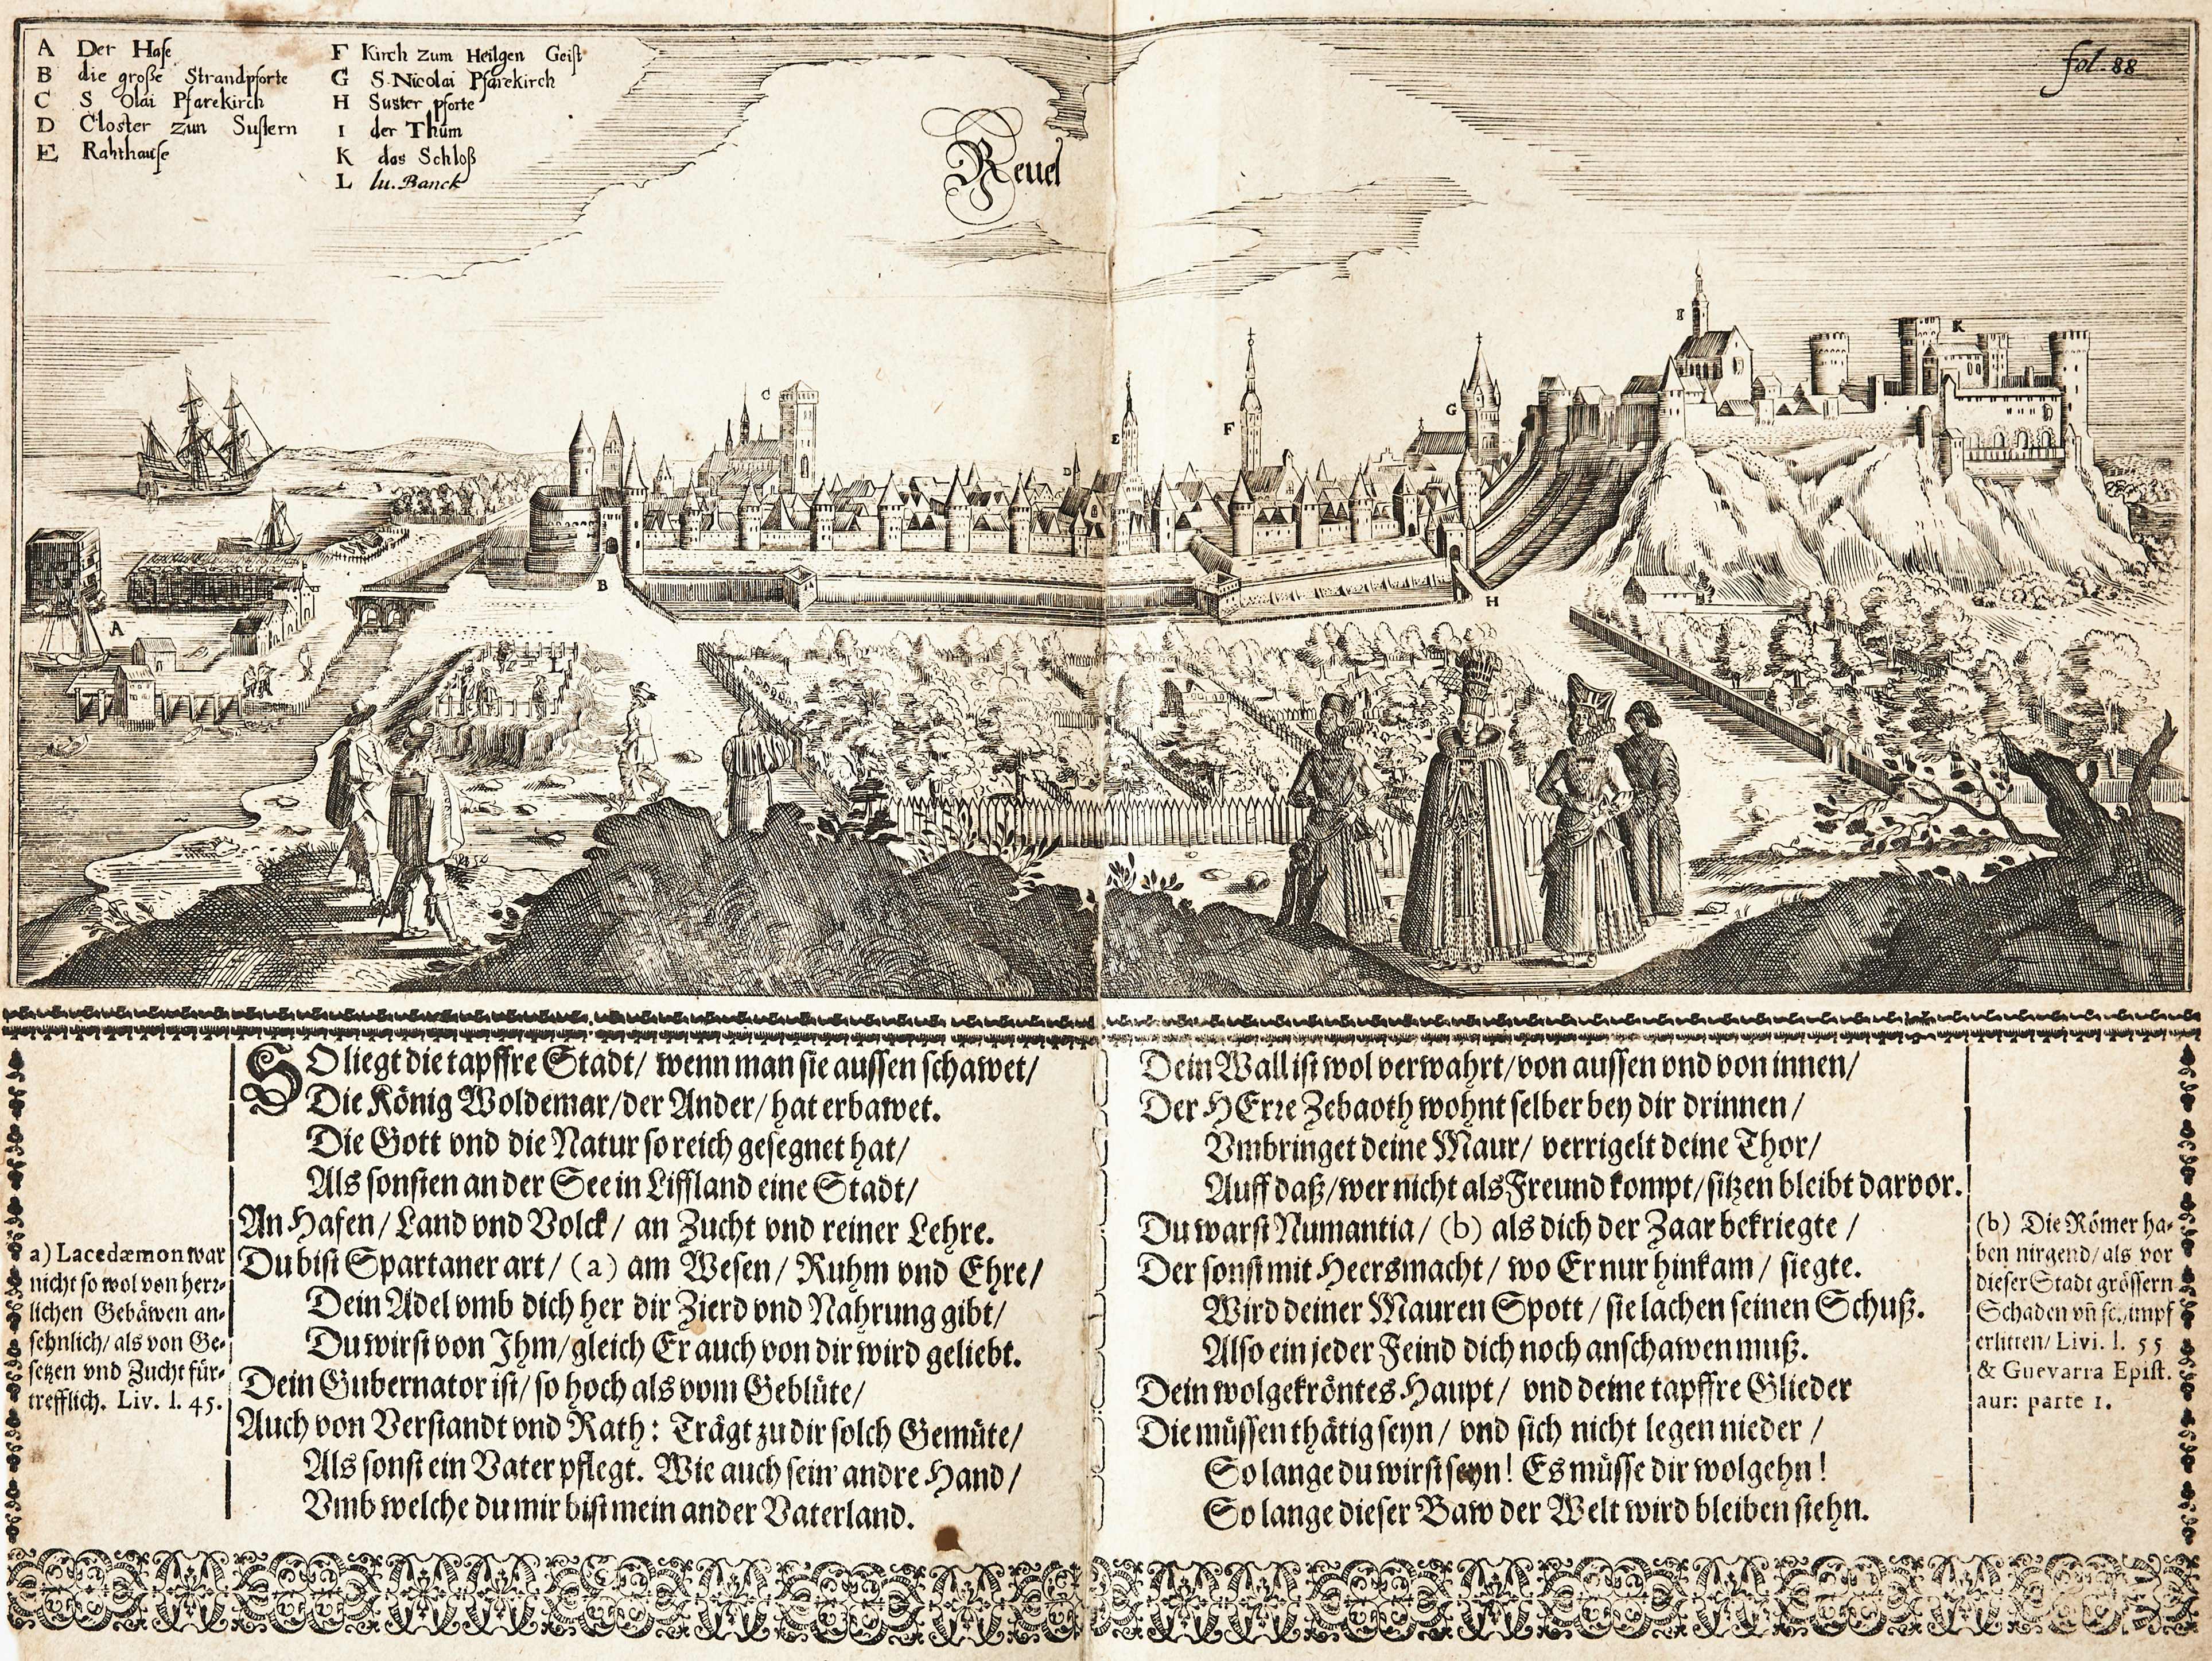 A Der Hafe
B die große Strandpforte
C S Olai Pfarekirch
D Closter zun Sustern
E Rahthause
F Kirch zum Heilgen Geist
G S. Nicolai Pfarekirch
H Suster pforte
I der Thum
K das Schloß
L lu. Banck
Reuel
fol. 88
C
I
K
E
F
G
D
B
H
A
L
SO liegt die tapffre Stadt/ wenn man sie aussen schawet/
Die König Woldemar/ der Ander/ hat erbawet.
Die Gott vnd die Natur so reich gesegnet hat/
Als sonsten an der See in Liffland eine Stadt/
An Hafen/ Land vnd Volck/ an Zucht vnd reiner Lehre.
Du bist Spartaner art/ (a) am Wesen/ Ruhm vnd Ehre/
Dein Adel vmb dich her dir Zierd vnd Nahrung gibt/
Du wirst von Ihm/ gleich Er auch von dir wird geliebt.
Dein Gubernator ist/ so hoch als vom Geblüte/
Auch von Verstandt vnd Rath: Trägt zu dir solch Gemüte/
Als sonst ein Vater pflegt. Wie auch sein' andre Hand/
Vmb welche du mir bist mein ander Vaterland.
a) Lacedæmon war
nicht so wol von herr-
lichen Gebäwen an-
sehnlich/ als von Ge-
setzen vnd Zucht für-
trefflich. Liv. l. 45.
Dein Wall ist wol verwahrt/ von aussen vnd von innen/
Der HErre Zebaoth wohnt selber bey dir drinnen/
Vmbringet deine Maur/ verrigelt deine Thor/
Auff daß/ wer nicht als Freund kompt/ sitzen bleibt darvor.
Du warst Numantia/ (b) als dich der Zaar bekriegte/
Der sonst mit Heersmacht/ wo Er nur hinkam/ siegte.
Wird deiner Mauren Spott/ sie lachen seinen Schuß.
Also ein jeder Feind dich noch anschawen muß.
Dein wolgekröntes Haupt/ vnd deine tapffre Glieder
Die müssen thätig seyn/ vnd sich nicht legen nieder/
So lange du wirst seyn! Es müsse dir wolgehn!
So lange dieser Baw der Welt wird bleiben stehn.
(b) Die Römer ha-
ben nirgend/ als vor
dieser Stadt grössern
Schaden vn̄ schimpf
erlitten/ Livi. l. 55
& Guevarra Epist.
aur: parte 1.